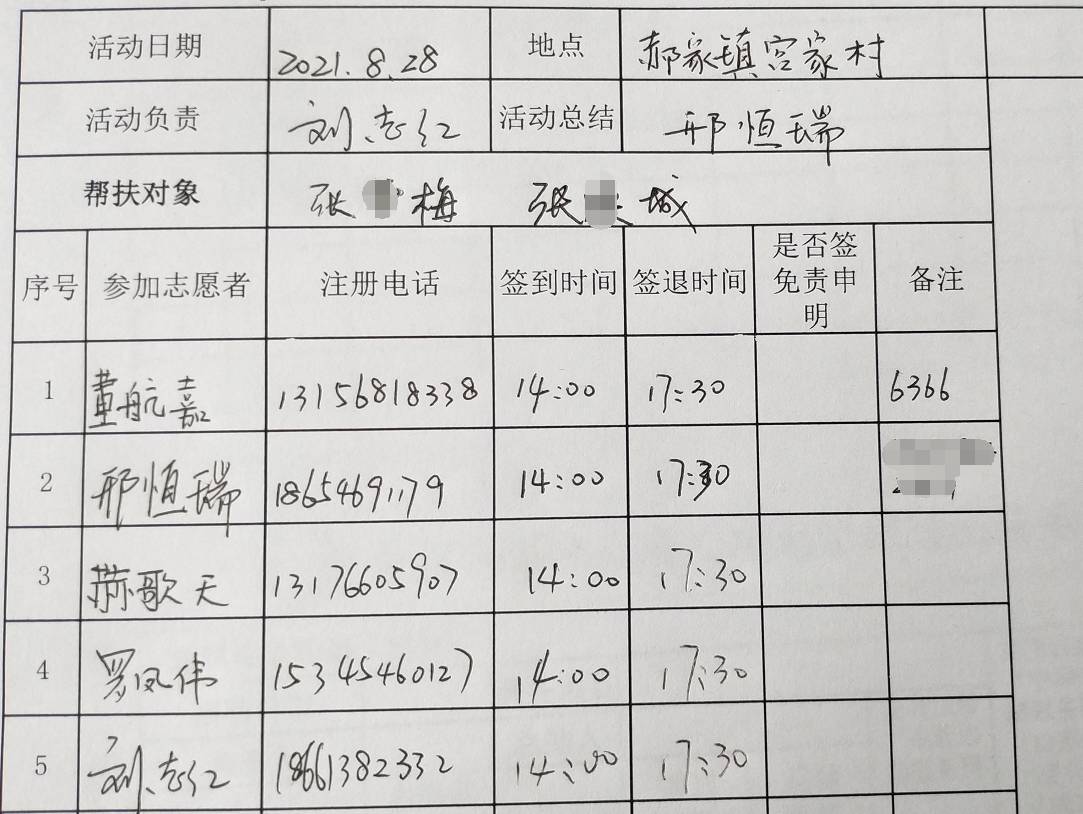 活动日期 2021.8.28 地点 郝家镇宫家村
活动负责 刘志红 活动总结 邢恒瑞
帮扶对象 张 梅 张 城
序号 参加志愿者 注册电话 签到时间 签退时间 是否签免责申明 备注
1 董航嘉 13156818338 14:00 17:30 6366
2 邢恒瑞 18654691179 14:00 17:30
3 歌天 13176605907 14:00 17:30
4 罗凤伟 15345460127 14:00 17:30
5 刘志红 18661382332 14:00 17:30